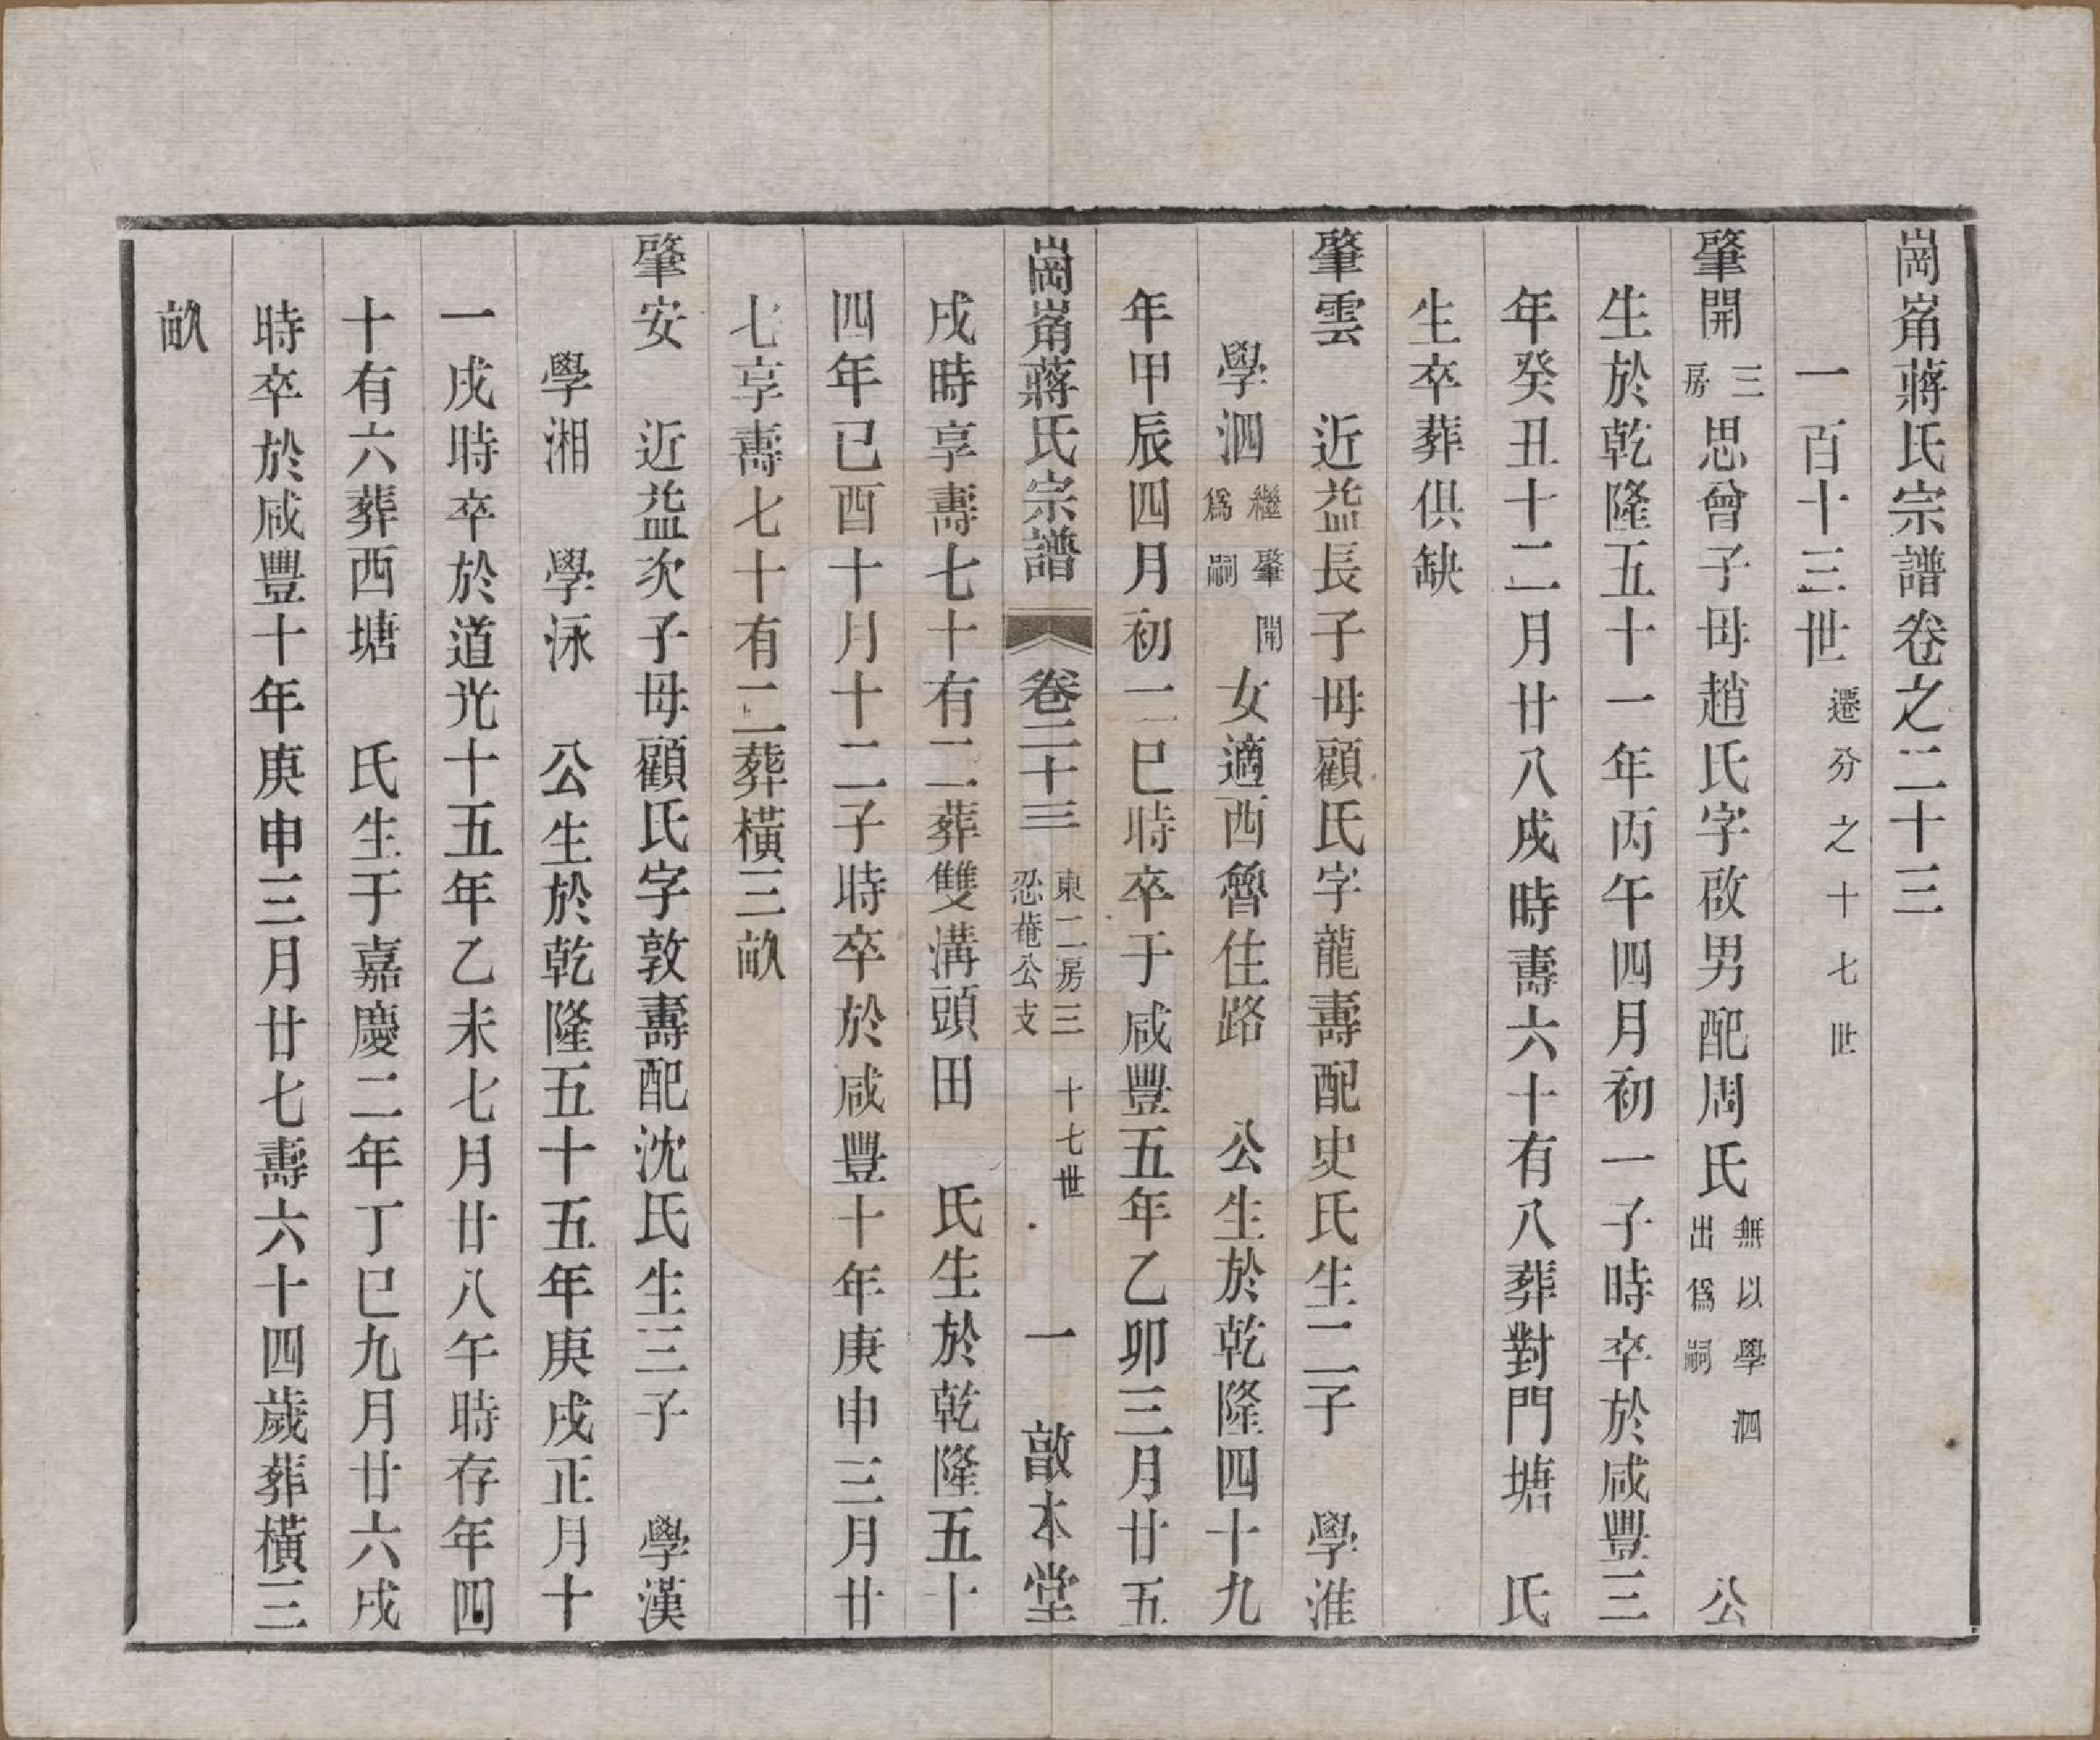 崗崙蔣氏宗譜卷之二十三
一百十三世遷分之十七世
肇開三房思曾子母趙氏字啟男配周氏無以學泗出爲嗣　公
生於乾隆五十一年丙午四月初一子時卒於咸豐三
年癸丑十二月廿八戌時壽六十有八葬對門塘　氏
生卒葬俱缺
肇雲　近益長子母顧氏字龍壽配史氏生二子　學淮
學泗繼肇開爲嗣　女適西魯住路　公生於乾隆四十九
年甲辰四月初一巳時卒于咸豐五年乙卯三月廿五
崗崙蔣氏宗譜　卷二十三　東二房三忍菴公支　十七世　一　敔本堂
戌時享壽七十有二葬雙溝頭田　氏生於乾隆五十
四年己酉十月十二子時卒於咸豐十年庚申三月廿
七享壽七十有二葬橫三畝
肇安　近益次子母顧氏字敦壽配沈氏生三子　學漢
學湘　學泳　公生於乾隆五十五年庚戌正月十
一戌時卒於道光十五年乙未七月廿八午時存年四
十有六葬西塘　氏生于嘉慶二年丁巳九月廿六戌
時卒於咸豐十年庚申三月廿七壽六十四歲葬橫三
畝